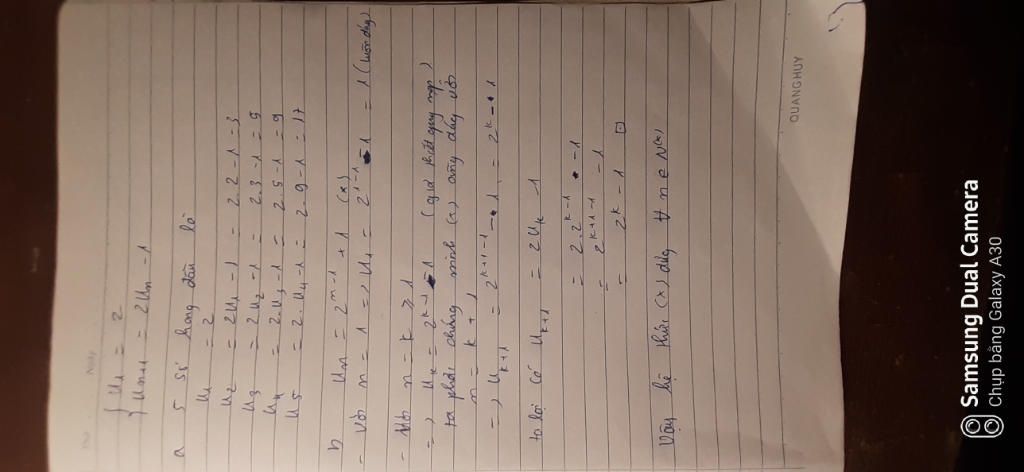 Ngày
{ u₁ = 2
u_{n+1} = 2u_n - 1
a 5 số hạng đầu là
u₁ = 2
u₂ = 2u₁ - 1 = 2.2 - 1 = 3
u₃ = 2u₂ - 1 = 2.3 - 1 = 5
u₄ = 2.u₃ - 1 = 2.5 - 1 = 9
u₅ = 2.u₄ - 1 = 2.9 - 1 = 17
b u_n = 2^{n-1} + 1 (*)
- Với n = 1 => u₁ = 2^{1-1} - 1 = 1 (luôn đúng)
- Với n = k ≥ 1
=> u_k = 2^{k-1} - 1 (giả thiết quy nạp)
ta phải chứng minh (*) cũng đúng với
n = k + 1
=> u_{k+1} = 2^{k+1-1} - 1 = 2^k - 1
ta lại có u_{k+1} = 2u_k - 1
= 2.2^{k-1} - 1
= 2^{k+1-1} - 1
= 2^k - 1 □
Vậy hệ thức (*) đúng ∀ n ∈ N(*)
QUANG HUY
Samsung Dual Camera
Chụp bằng Galaxy A30